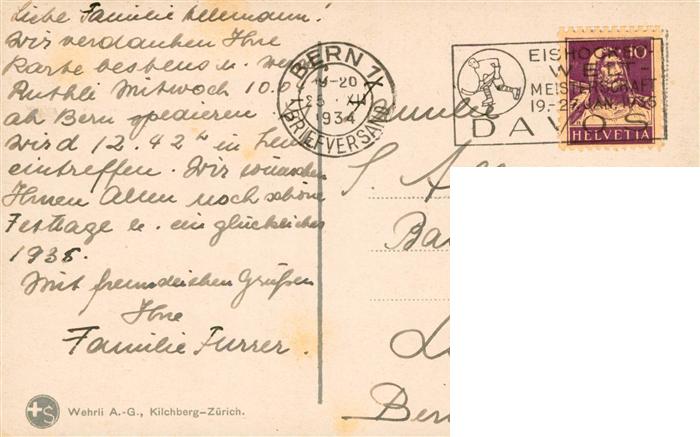 Liebe Familie Allemann!
Wir verdanken Ihre
Karte bestens u. wer
Ruthli Mittwoch 10.0
ab Bern spedieren
wird 12.42 in
eintreffen. Wir wünschen
Ihnen Allen noch schöne
Festtage u. ein glückliches
1935.
Mit freundlichen Grüßen
Ihre
Familie Furrer.
Wehrli A.-G., Kilchberg-Zürich.
BERN 1
19-20
25. XII
1934
BRIEFVERSAND
EISHOCKEY-
WELT-
MEISTERSCHAFT
19.-27. JAN. 1935
DAVOS
10
HELVETIA
Familie
S. A
Ba